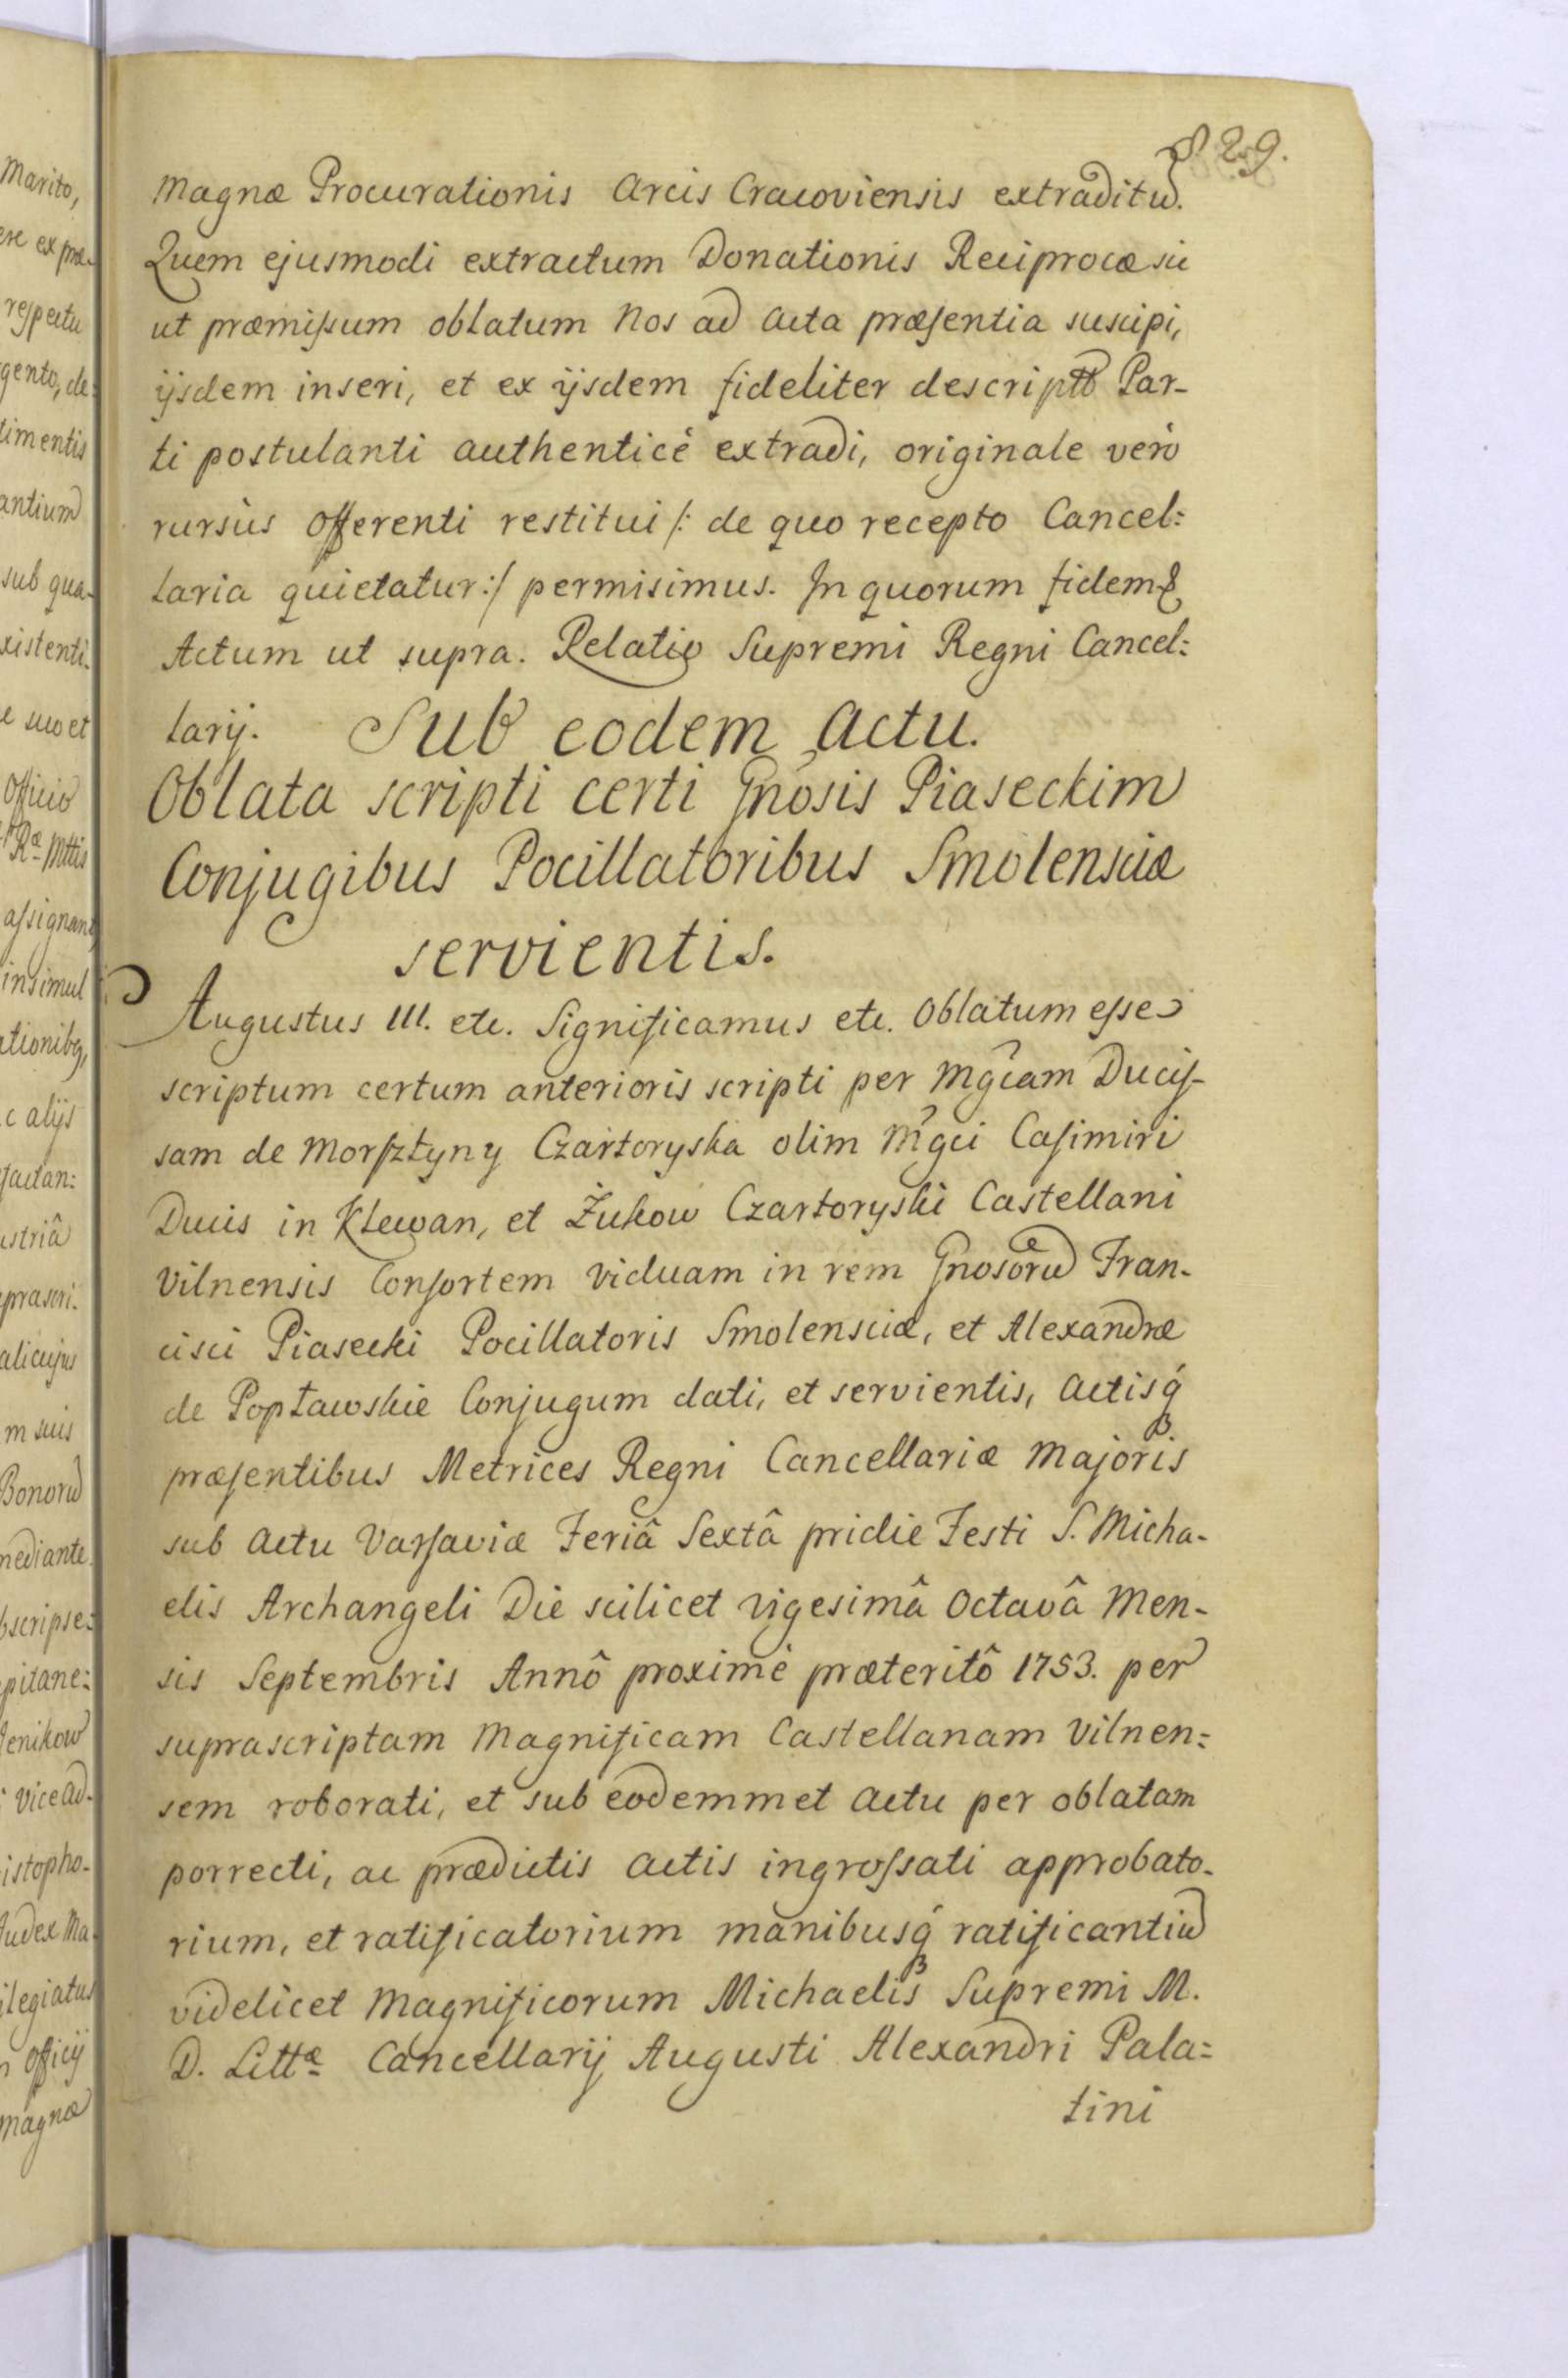 829.
Magnæ Procurationis Arcis Cracoviensis extraditū.
Quem ejusmodi extractum Donationis Reciprocæ sic
ut præmissum oblatum Nos ad Acta præsentia suscipi,
ijsdem inseri, et ex ijsdem fideliter descriptū Par-
ti postulanti authenticè extradi, originale verò
rursùs Offerenti restitui /: de quo recepto Cancel:
laria quietatur :/ permisimus. In quorum fidem &
Actum ut supra. Relatio Supremi Regni Cancel:
larij. Sub eodem Actu.
Oblata scripti certi Gnosis Piaseckim
Conjugibus Pocillatoribus Smolensciæ
servientis.
Augustus III. etc. Significamus etc. Oblatum esse
scriptum certum anterioris scripti per Mgcam Ducis-
sam de Morsztyny Czartoryska olim Mgci Casimiri
Ducis in Klewan, et Żukow Czartoryski Castellani
Vilnensis Consortem Viduam in rem Gnosorū Fran-
cisci Piasecki Pocillatoris Smolensciæ, et Alexandræ
de Popławskie Conjugum dati, et servientis, Actisq́
præsentibus Metrices Regni Cancellariæ Majoris
sub Actu Varsaviæ Feriâ Sextâ pridie Festi S. Micha-
elis Archangeli Die scilicet vigesimâ Octavâ Men-
sis Septembris Annô proximè præteritô 1753. per
suprascriptam Magnificam Castellanam Vilnen:
sem roborati, et sub eodemmet Actu per oblatam
porrecti, ac prædictis Actis ingrossati approbato-
rium, et ratificatorium manibusq́ ratificantiū
videlicet Magnificorum Michaelis Supremi M.
D. Littæ Cancellarij Augusti Alexandri Pala:
tini